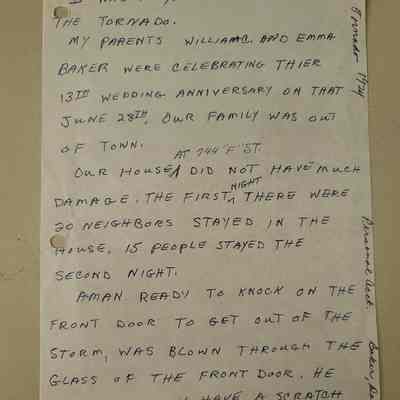 THE TORNADO.
MY PARENTS WILLIAM C. AND EMMA
BAKER WERE CELEBRATING THIER
13TH WEDDING ANNIVERSARY ON THAT
JUNE 28TH. OUR FAMILY WAS OUT
OF TOWN.
OUR HOUSE AT 744 "F" ST. DID NOT HAVE MUCH
DAMAGE. THE FIRST NIGHT THERE WERE
20 NEIGHBORS STAYED IN THE
HOUSE. 15 PEOPLE STAYED THE
SECOND NIGHT.
A MAN READY TO KNOCK ON THE
FRONT DOOR TO GET OUT OF THE
STORM, WAS BLOWN THROUGH THE
GLASS OF THE FRONT DOOR. HE
HAVE A SCRATCH
Tornado 1924
Personal Acct.
Baker,